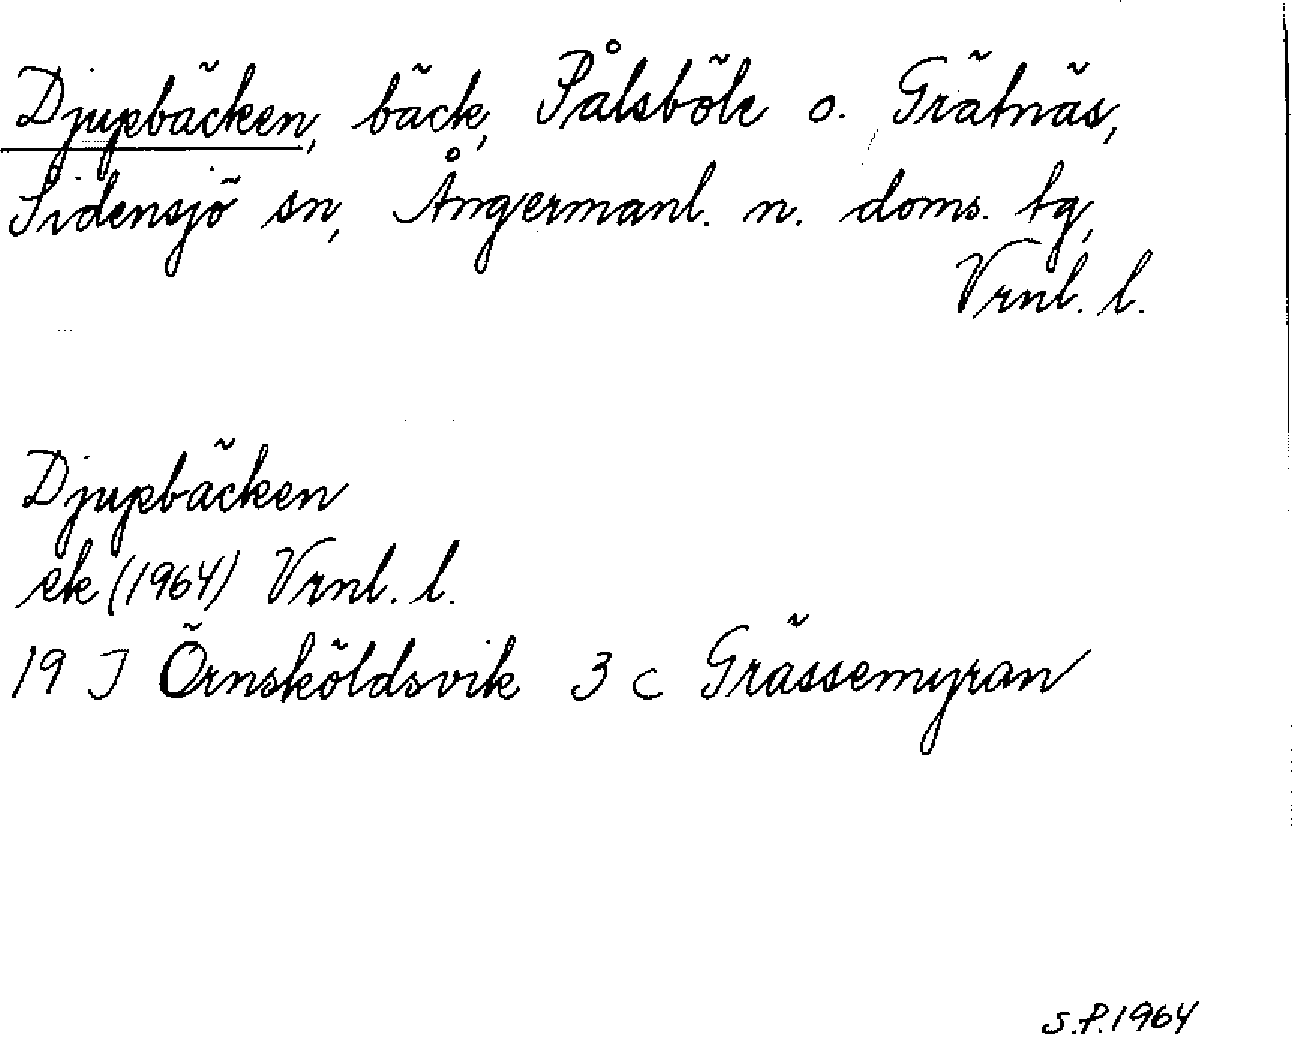 Djupbäcken, bäck, Pålsböle o. Grätnäs,
Sidensjö sn, Ångermanl. n. doms. tg,
Vrnl. l.
Djupbäcken
ek (1964) Vrnl. l.
19 J Örnsköldsvik 3 c Grässemyran
S.P. 1964